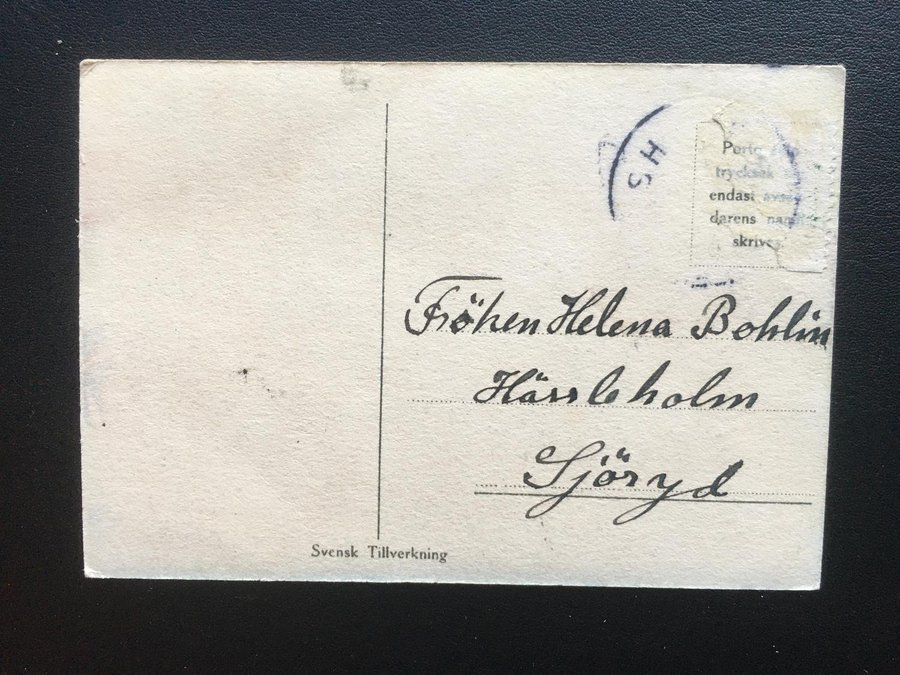 HS
Porto
trycksak
endast avsän
darens namn
skrives.
Fröken Helena Bohlin
Hässleholm
Sjöryd
Svensk Tillverkning